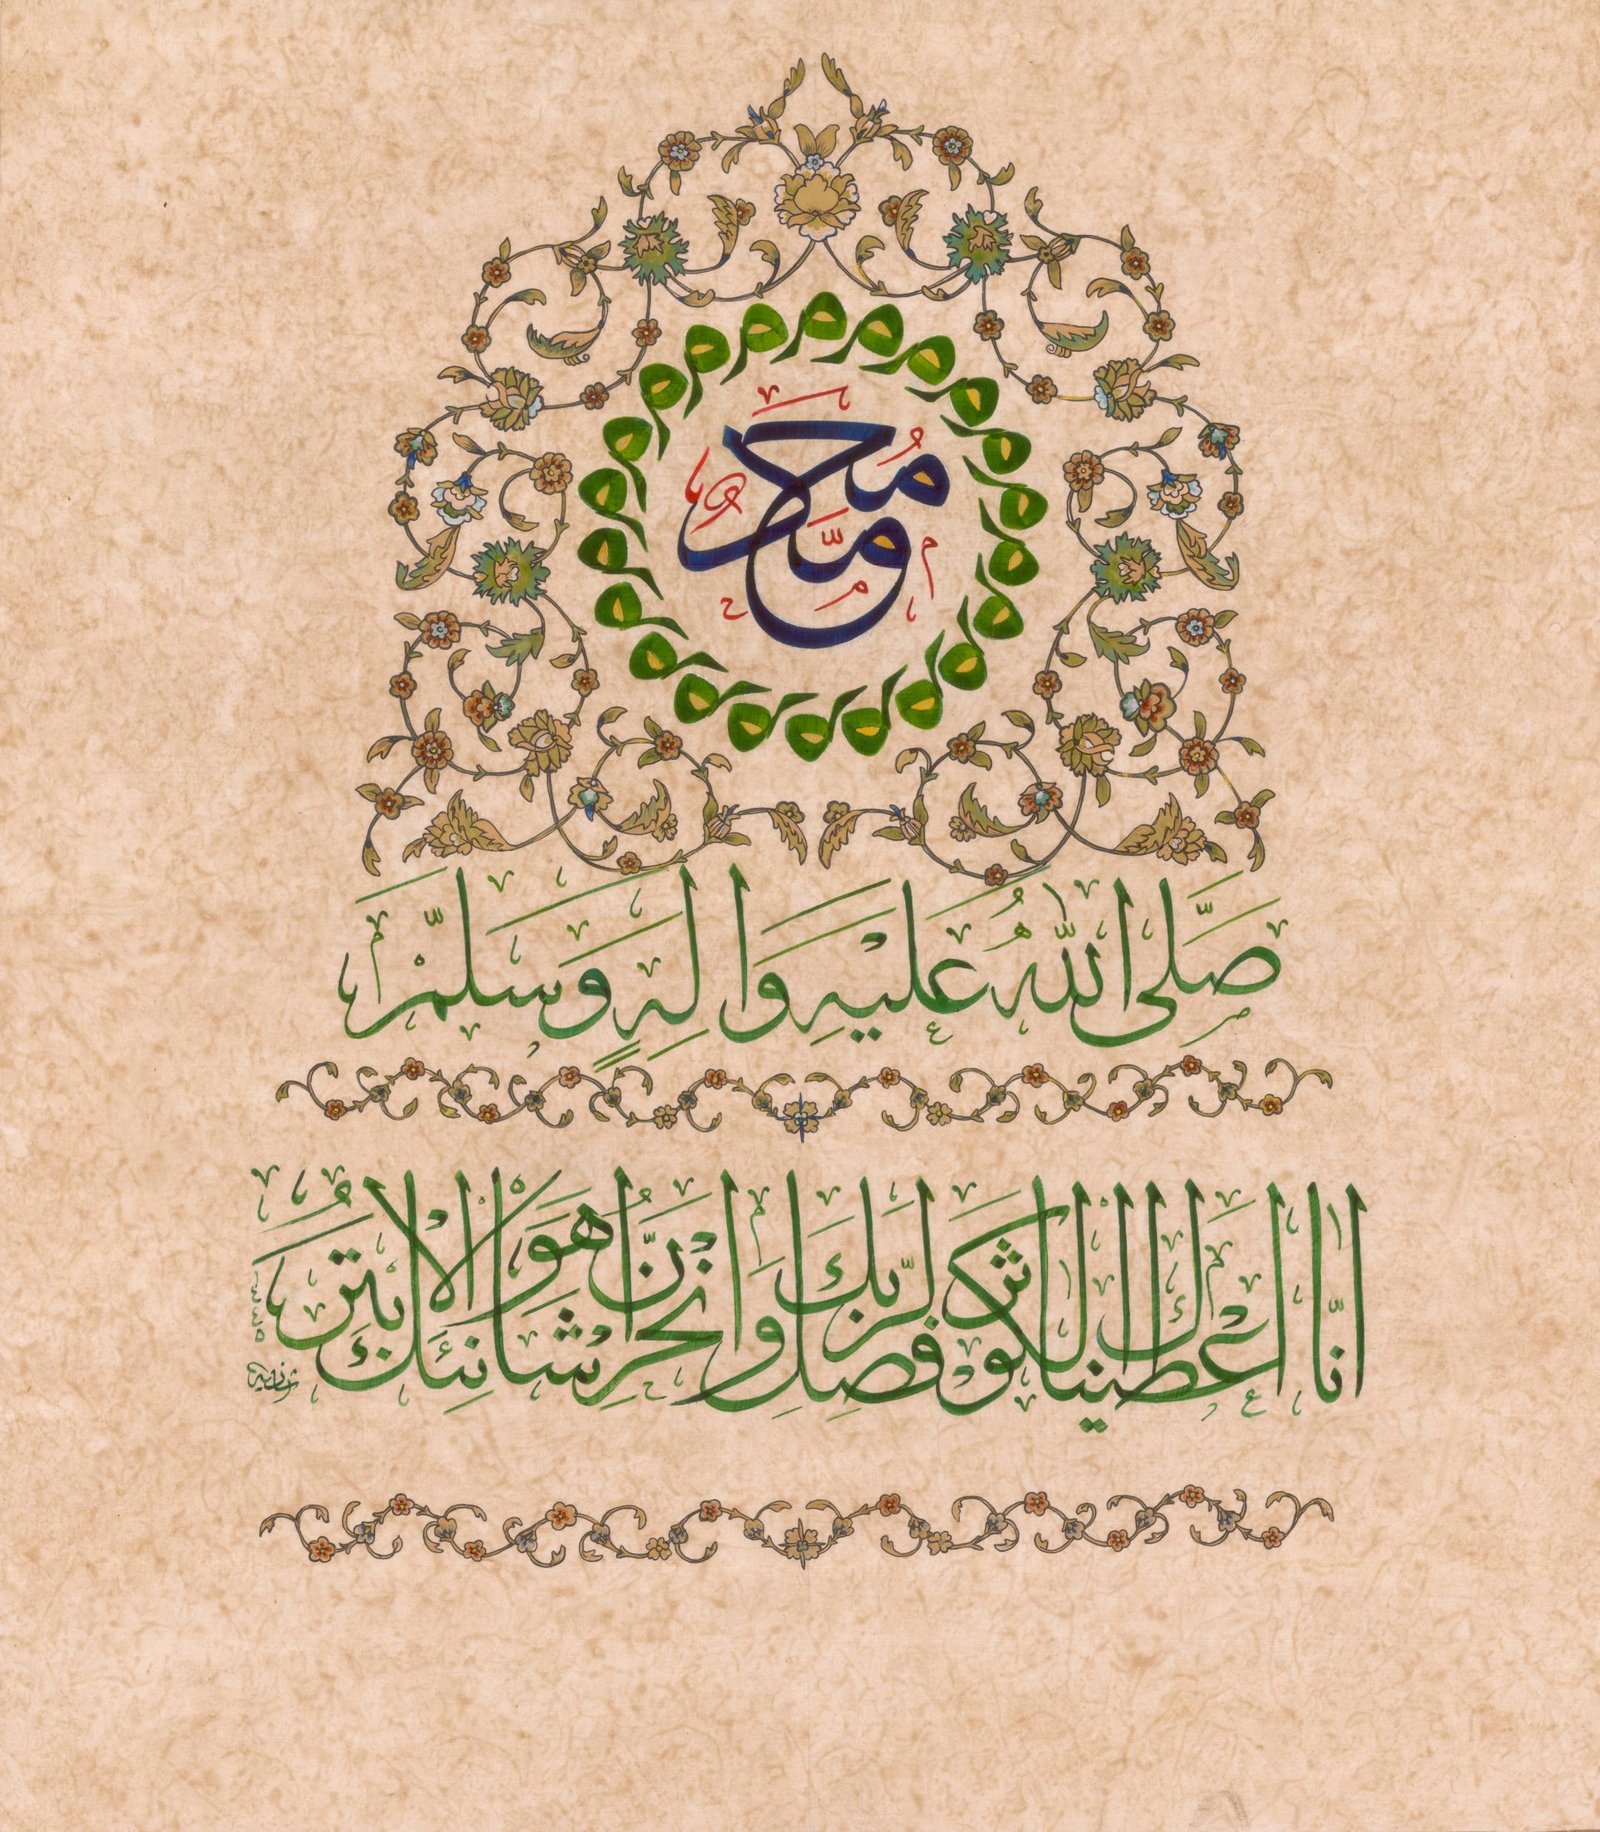 مُحَمَّد
صَلَّى اللهُ عَلَيْهِ وَاٰلِهٖ وَسَلَّمَ
اِنَّا اَعْطَيْنٰكَ الْكَوْثَرَ فَصَلِّ لِرَبِّكَ وَانْحَرْ اِنَّ شَانِئَكَ هُوَ الْاَبْتَرُ